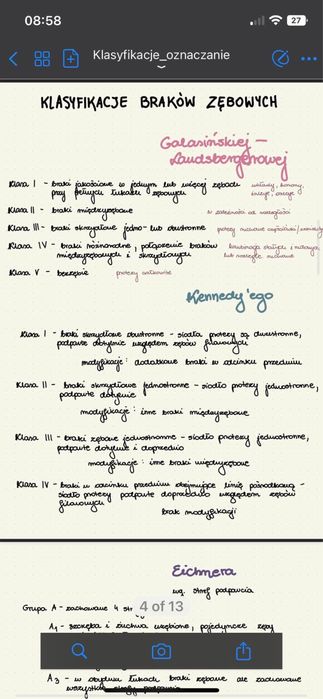 08:58
27
Klasyfikacje_oznaczanie
KLASYFIKACJE BRAKÓW ZĘBOWYCH
Gałasińskiej –
Landsbergerowej
Klasa I - braki jakościowe w jednym lub więcej zębach
przy pełnych łukach zębowych
wkłady, korony,
Klasa II - braki międzyzębowe
w zależności od rozległości
Klasa III - braki skrzydłowe jedno- lub obustronne
protezy ruchome
Klasa IV - braki różnorodne, połączenie braków
międzyzębowych i skrzydłowych
kombinacja stałych z
lub rozległe ruchome
Klasa V - bezzębie
protezy całkowite
Kennedy'ego
Klasa I - braki skrzydłowe obustronne - siodła protezy są dwustronne,
podparte dotylnie względem zębów filarowych
modyfikacje: dodatkowe braki w odcinku przednim
Klasa II - braki skrzydłowe jednostronne - siodło protezy jednostronne,
podparte dotylnie
modyfikacje: inne braki międzyzębowe
Klasa III - braki zębowe jednostronne - siodło protezy jednostronne,
podparte dotylnie i doprzednio
modyfikacje: inne braki międzyzębowe
Klasa IV - braki w odcinku przednim obejmujące linię pośrodkową -
siodło protezy podparte doprzednio względem zębów
filarowych
brak modyfikacji
Eichnera
wg. stref podparcia
Grupa A - zachowane 4 str
4 of 13
A1 - szczęka i żuchwa uzębione, pojedyncze zęby
A3 - w obydwu łukach braki zębowe ale zachowane
wszystkie strefy podparcia